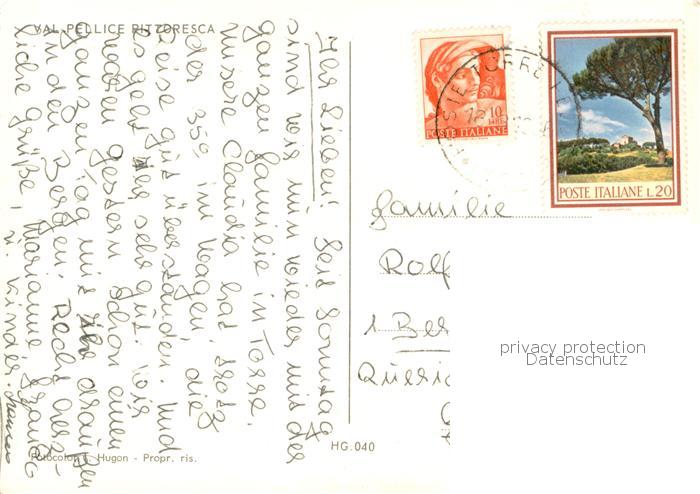 VAL PELLICE PITTORESCA
Ihr Lieben! Seit Sonntag
sind wir nun wieder mit der
ganzen Familie in Torre.
Unsere Claudia hat, trotz
der 35° im Wagen, die
Reise gut überstanden. Und
es geht ihr sehr gut. Wir
waren gestern schon einen
ganzen Tag mit ihr draußen
in den Bergen. Recht herz-
liche Grüße, Marianne Franco
u. Kinder.
Fotocolor Hugon - Propr. ris.
HG.040
10
LIRE
POSTE ITALIANE
POSTE ITALIANE L.20
TORRE
Familie
Rolf
1 Ber
privacy protection
Datenschutz